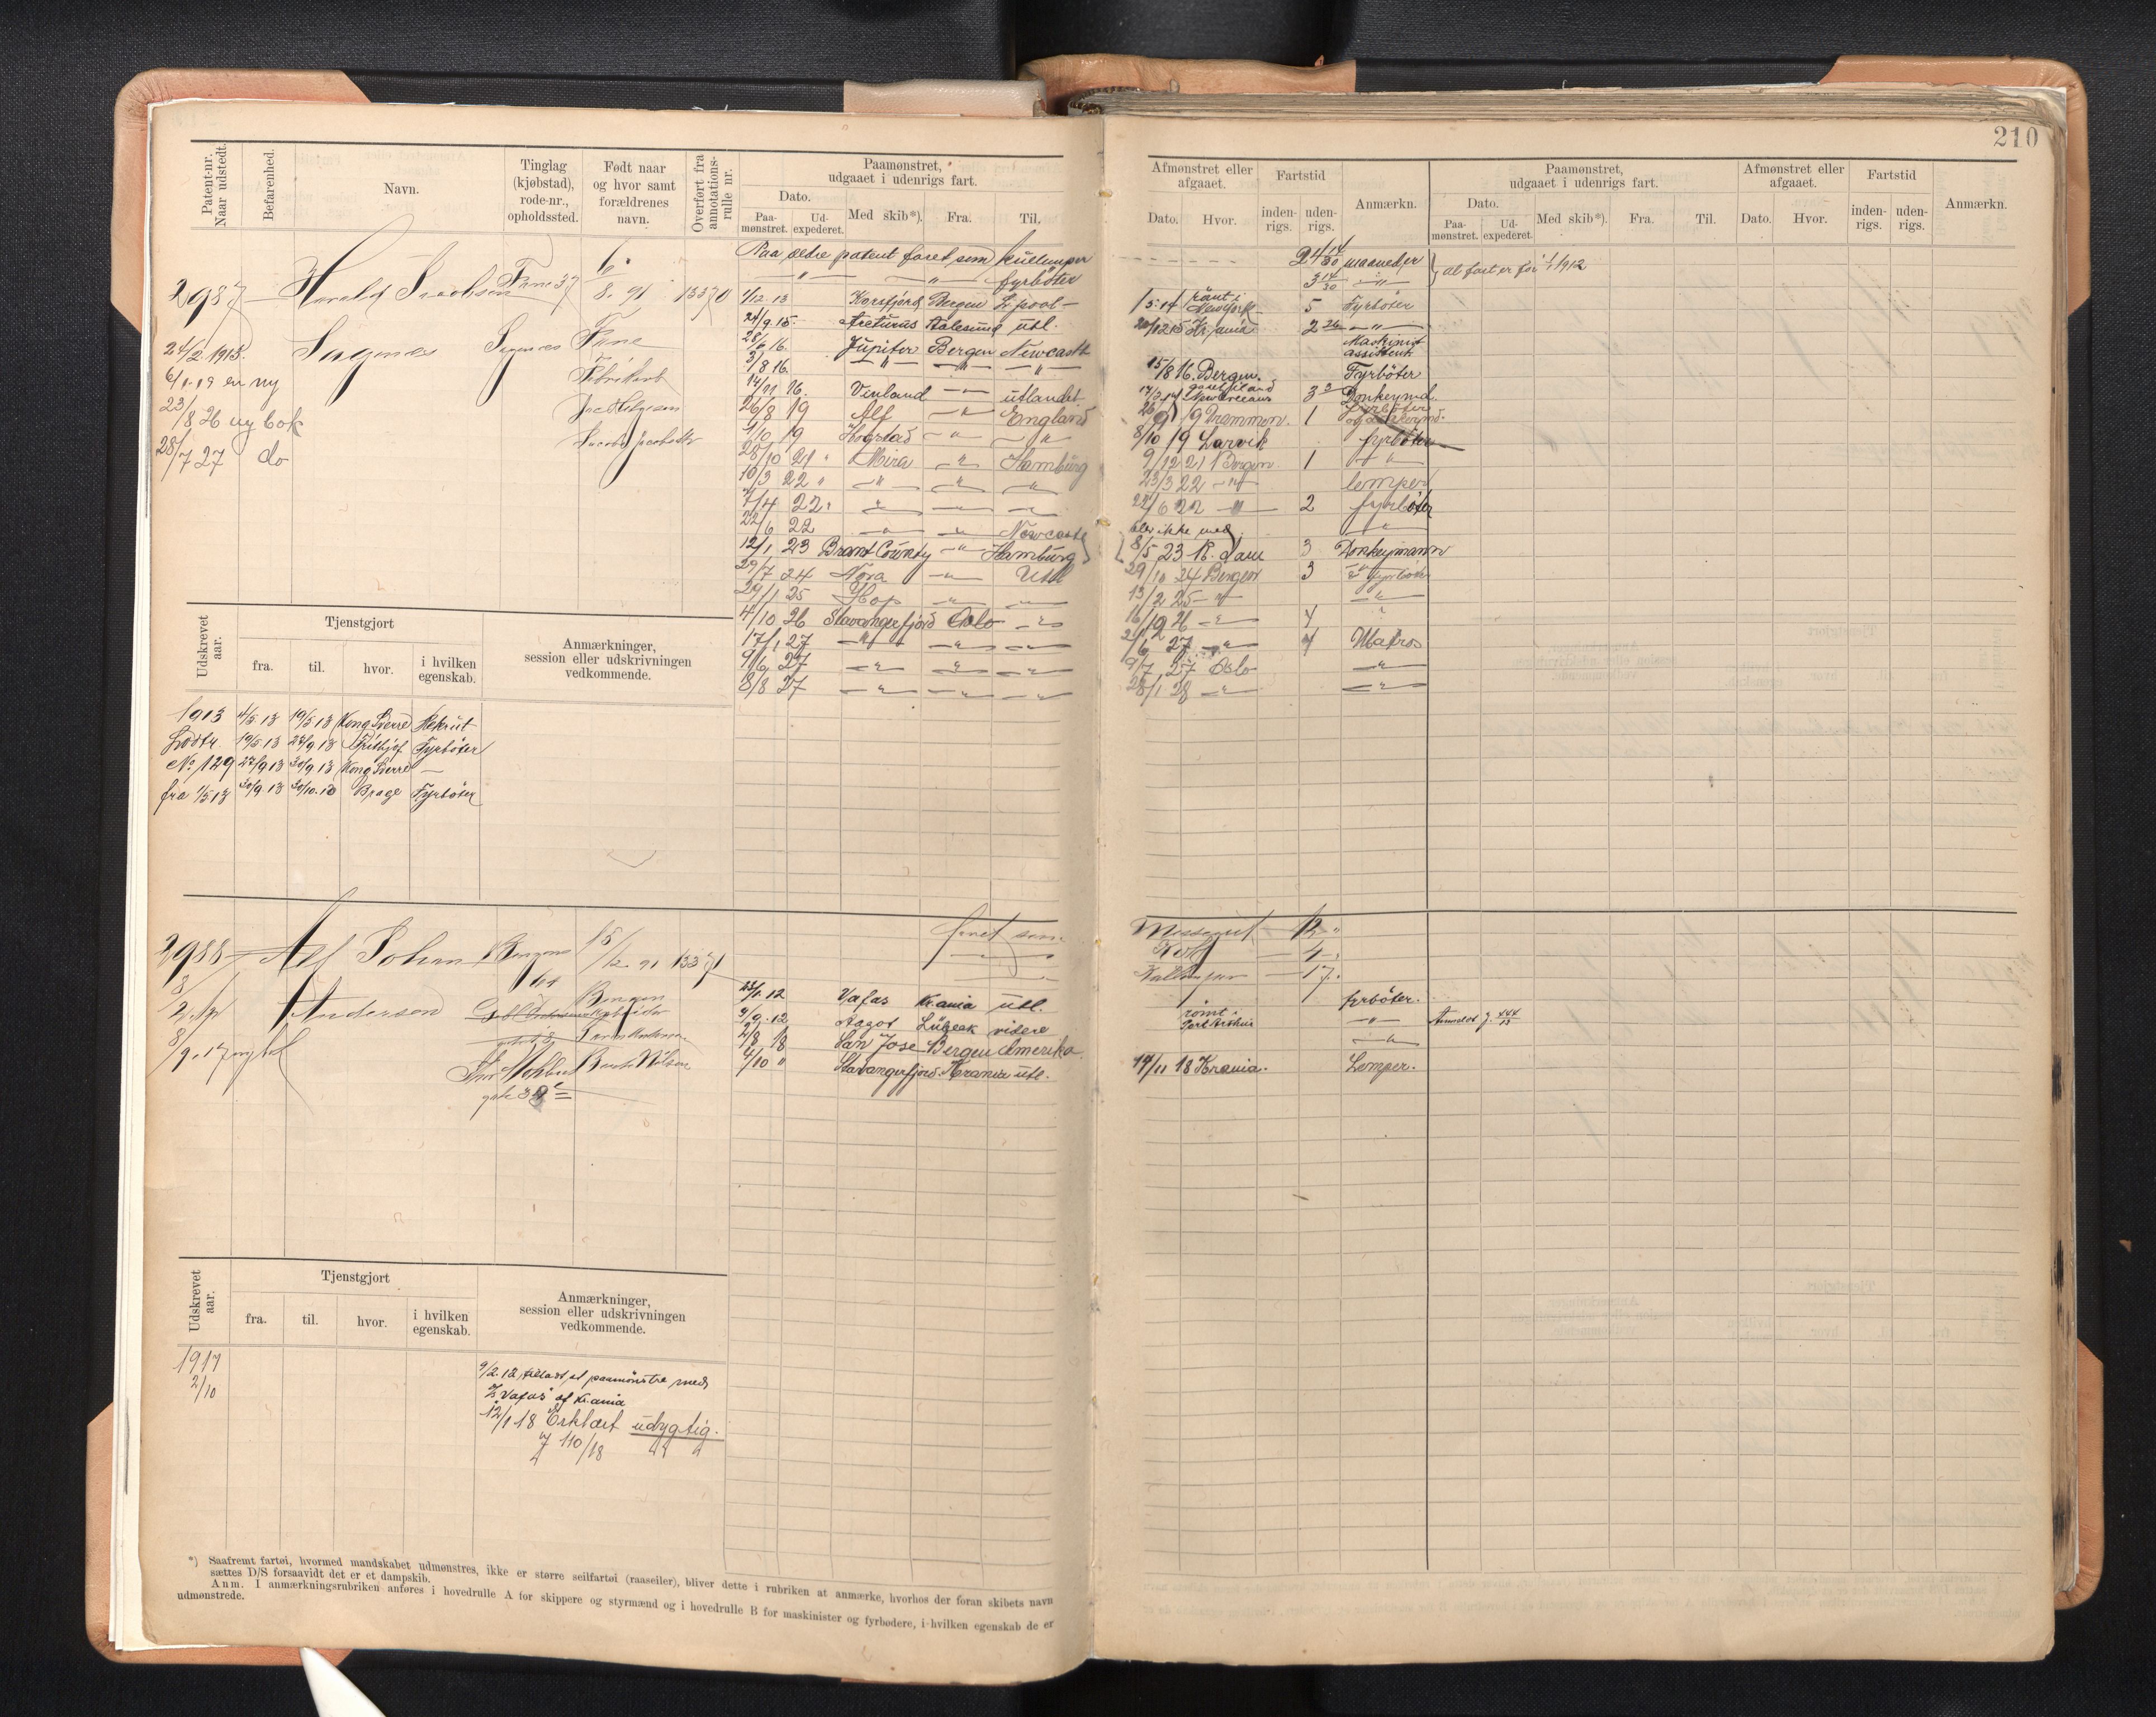 210
Patent-nr. Naar udstedt.
Befarenhed.
Navn.
Tinglag (kjøbstad), rode-nr., opholdssted.
Født naar og hvor samt forældrenes navn.
Overført fra annotations-rulle nr.
Paamønstret, udgaaet i udenrigs fart.
Dato.
Paa-mønstret.
Ud-expederet.
Med skib*).
Fra.
Til.
Afmønstret eller afgaaet.
Dato.
Hvor.
Fartstid
inden-rigs.
uden-rigs.
Anmærkn.
Paamønstret, udgaaet i udenrigs fart.
Dato.
Paa-mønstret.
Ud-expederet.
Med skib*).
Fra.
Til.
Afmønstret eller afgaaet.
Dato.
Hvor.
Fartstid
inden-rigs.
uden-rigs.
Anmærkn.
2987 Harald Fane 37 6/8. 91 13370
24/2. 1913. Fane
6/1. 19 en ny
23/8 26 ny bok
28/7 27 do
Paa ældre patent faret som kullemper 24 14/30 maaneder
— " — " — fyrböter 3 14/30 — " — alt fart er før 1/1 1912
1/12. 13 Korsfjord Bergen L.pool — 5 Fyrböter
24/9. 15. Arcturus Aalesund utl. Kr.ania 2
28/6 16. Jupiter Bergen Newcastle Maskinist assistent
3/8 16. — " — — " — — " — 15/8 16. Bergen. Fyrböter
14/11 16. Vinland — " — utlandet 3 Donkeymd.
26/8 19 Alf — " — England Drammen. 1
1/10 19 Hogstad — " — — " — 8/10 19 Larvik fyrböter
28/10 21 Mira — " — Hamburg 9/12 21 Bergen 1 — " —
10/3 22 — " — — " — — " — 23/3 22 — " — lemper
7/4 22 — " — — " — — " — 22/6 22 — " — 2 fyrböter
22/6 22 — " — — " — Newcastle blev ikke med — " —
12/1 23 Brant County — " — Hamburg 8/5 23 R. dam 3 Donkeymann
29/7 24 Nora — " — Utl 29/10 24 Bergen 3 fyrböter
29/1 25 Hop — " — — " — 13/2 25 — " — — " —
4/10 26 Stavangerfjord Oslo — " — 16/12 26 — " —
17/1 27 — " — — " — — " — 27 — " — Matros
9/6 27 — " — — " — — " — 9/7 27 Oslo — " —
8/8 27 — " — — " — — " — 28/1 28 — " — — " —
Udskrevet aar.
Tjenstgjort
fra.
til.
hvor.
i hvilken egenskab.
Anmærkninger, session eller udskrivningen vedkommende.
1913 4/5 13 19/5 13 Kong Sverre Rekrut
19/5 13 22/9 13 Frithjof Fyrböter
No. 129 22/9 13 30/9 13 Kong Sverre —
fra 1/5 13 30/9 13 30/10. 13 Brage Fyrböter
2988 Alf Johan Bergens 15/12. 91 13371 faret som Messegut — 12
Andersen Bergen Kok — 4
8/9. 17 ny bok Kullemper — 17
23/1. 12 Vafas Kr.ania utl. fyrböter.
3/9. 12 Aagot Lübeck videre römt i Port Arthur — " — Anmeldt j. 444/13
2/8 18 San Jose Bergen Amerika — " —
4/10 " Stavangerfjord Krania utl. 14/11 18 Krania. Lemper.
Udskrevet aar.
Tjenstgjort
fra.
til.
hvor.
i hvilken egenskab.
Anmærkninger, session eller udskrivningen vedkommende.
1917
2/10
9/2. 12, tilladt at paamönstre med
"Vafas" af Kr.ania
12/1 18 Erklært udygtig.
J 110/18
*) Saafremt fartøi, hvormed mandskabet udmønstres, ikke er større seilfartøi (raaseiler), bliver dette i rubriken at anmærke, hvorhos der foran skibets navn
sættes D/S forsaavidt det er et dampskib.
Anm. I anmærkningsrubriken anføres i hovedrulle A for skippere og styrmænd og i hovedrulle B for maskinister og fyrbødere, i hvilken egenskab de er
udmønstrede.